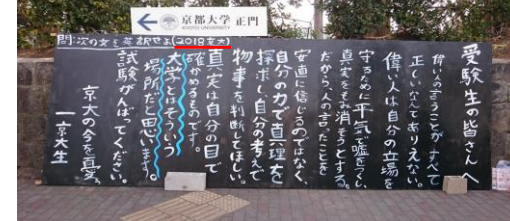 京都大学 正門
KYOTO UNIVERSITY
問:次の文を英訳せよ(2018京大)
受験生の皆さんへ
偉い人の言うことがすべて
正しいなんてありえない。
偉い人は自分の立場を
守るために平気で嘘をつくし、
真実をもみ消そうとする。
だから、人の言ったことを
安直に信じるのではなく、
自分の力で真理を
探求し、自分の考えで
物事を判断してほしい。
真実は自分の目で
確かめるものです。
大学とはそういう
場所だと思います。
試験がんばってください。
京大の今を真る。
一京大生